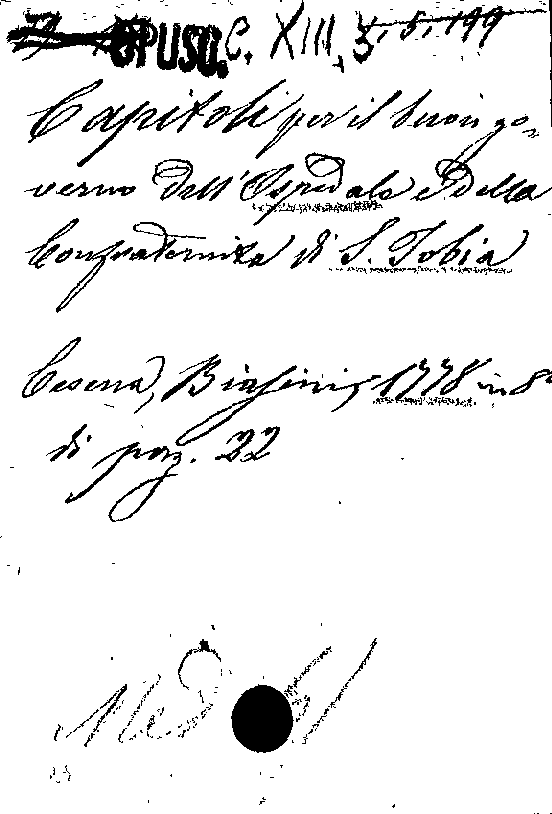 OPUSC. XIII, 5. 5. 199
Capitoli per il buon go-
verno dell'Ospedale e della
Confraternita di S. Tobia
Cesena, Biasini, 1778 in 8°
di pag. 22
Med